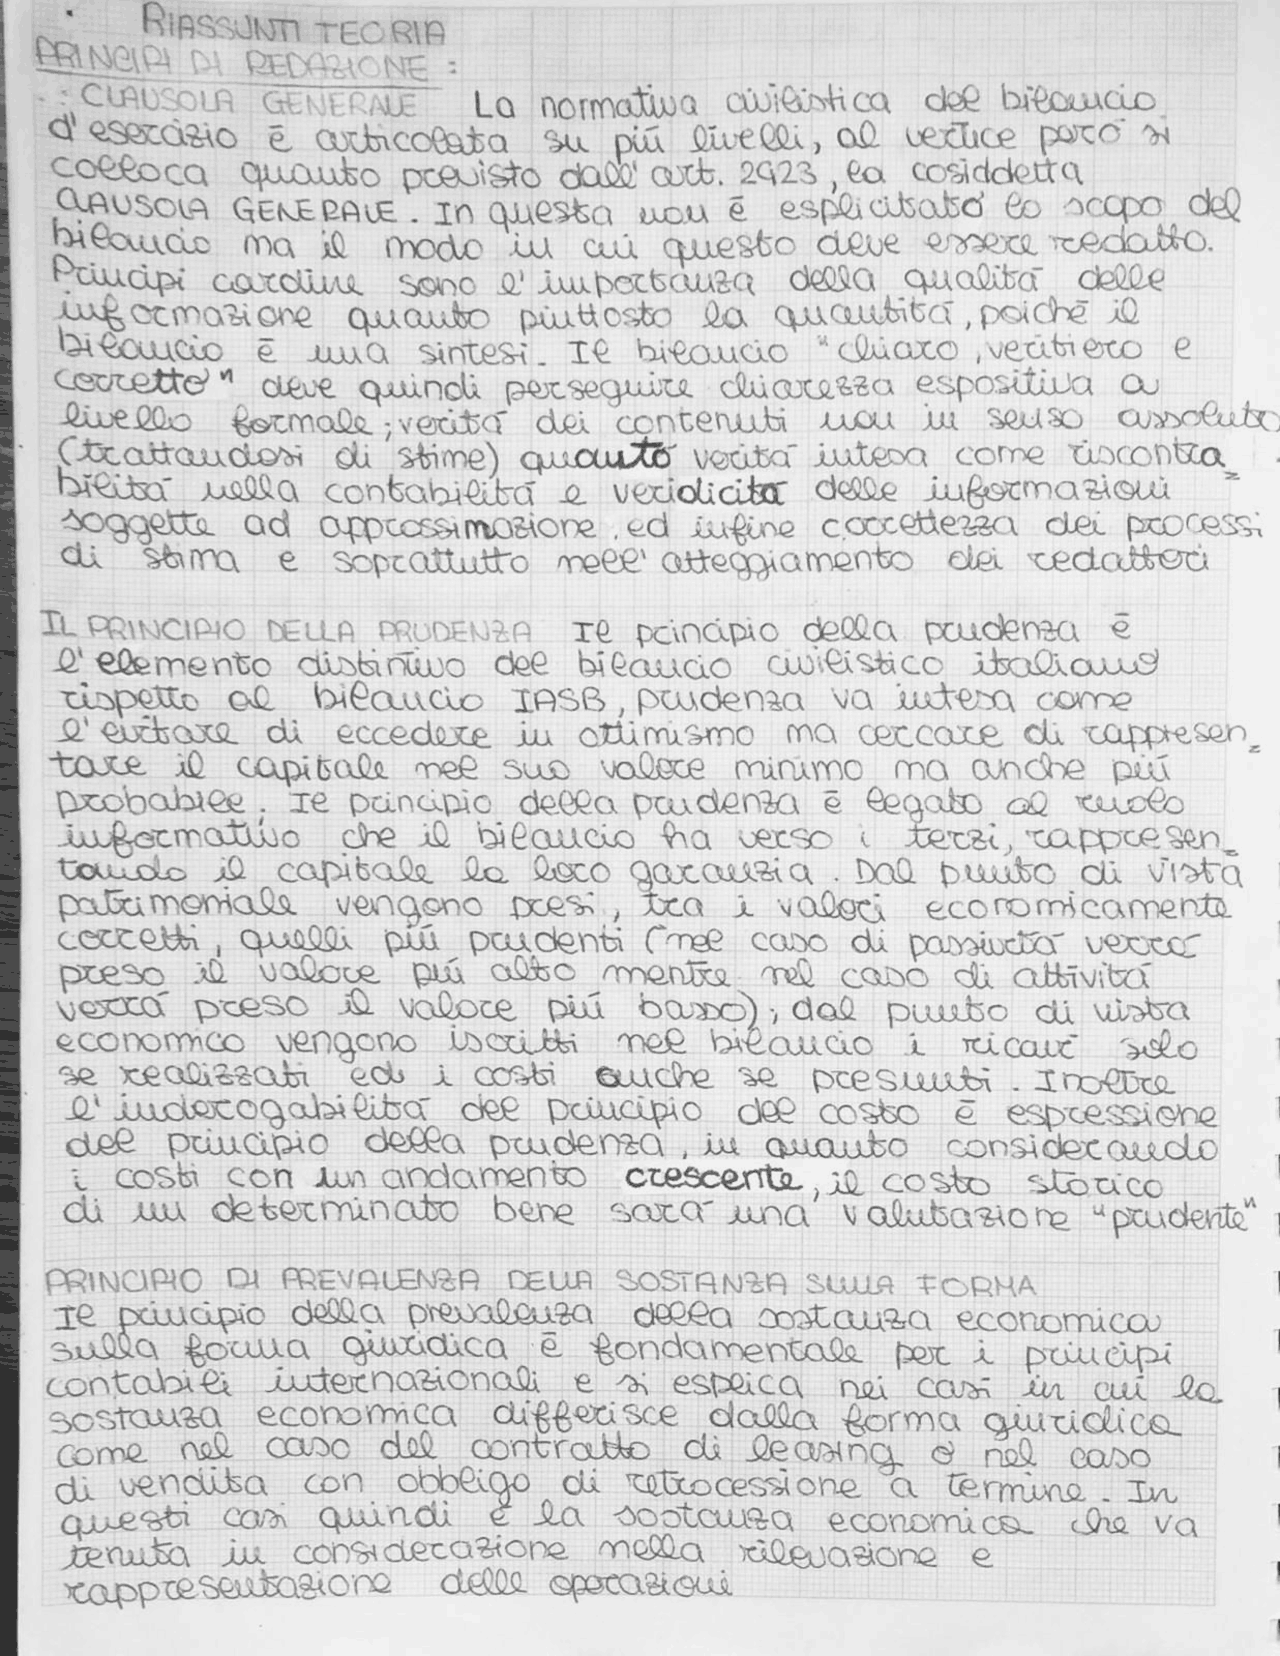 RIASSUNTI TEORIA
PRINCIPI DI REDAZIONE :
: CLAUSOLA GENERALE La normativa civilistica del bilancio
d'esercizio è articolata su più livelli, al vertice però si
colloca quanto previsto dall'art. 2423, la cosiddetta
CLAUSOLA GENERALE. In questa non è esplicitato lo scopo del
bilancio ma il modo in cui questo deve essere redatto.
Principi cardine sono l'importanza della qualità delle
informazione quanto piuttosto la quantità, poiché il
bilancio è una sintesi. Il bilancio "chiaro, veritiero e
corretto" deve quindi perseguire chiarezza espositiva a
livello formale; verità dei contenuti non in senso assoluto
(trattandosi di stime) quanto verità intesa come riscontra=
bilità nella contabilità e veridicità delle informazioni
soggette ad approssimazione, ed infine correttezza dei processi
di stima e soprattutto nell'atteggiamento dei redattori
IL PRINCIPIO DELLA PRUDENZA Il principio della prudenza è
l'elemento distintivo del bilancio civilistico italiano
rispetto al bilancio IASB, prudenza va intesa come
l'evitare di eccedere in ottimismo ma cercare di rappresen=
tare il capitale nel suo valore minimo ma anche più
probabile. Il principio della prudenza è legato al ruolo
informativo che il bilancio ha verso i terzi, rappresen=
tando il capitale la loro garanzia. Dal punto di vista
patrimoniale vengono presi, tra i valori economicamente
corretti, quelli più prudenti (nel caso di passività verrà
preso il valore più alto mentre nel caso di attività
verrà preso il valore più basso); dal punto di vista
economico vengono iscritti nel bilancio i ricavi solo
se realizzati ed i costi anche se presunti. Inoltre
l'inderogabilità del principio del costo è espressione
del principio della prudenza, in quanto considerando
i costi con un andamento crescente, il costo storico
di un determinato bene sarà una valutazione "prudente"
PRINCIPIO DI PREVALENZA DELLA SOSTANZA SULLA FORMA
Il principio della prevalenza della sostanza economica
sulla forma giuridica è fondamentale per i principi
contabili internazionali e si esplica nei casi in cui la
sostanza economica differisce dalla forma giuridica
come nel caso del contratto di leasing o nel caso
di vendita con obbligo di retrocessione a termine. In
questi casi quindi è la sostanza economica che va
tenuta in considerazione nella rilevazione e
rappresentazione delle operazioni